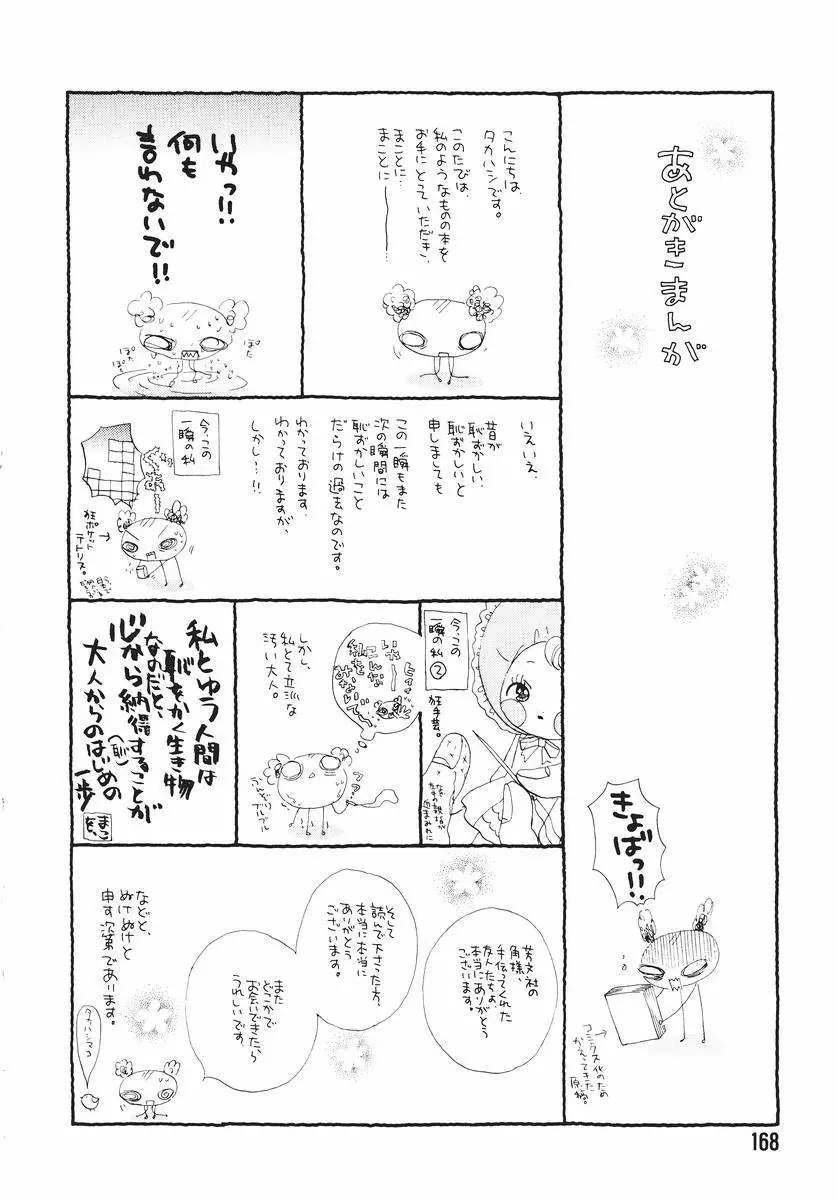 あとがきまんが
きょばっ!!
コミックス化のため
かえってきた
原稿。
こんにちは、
タカハシです。
このたびは、
私のようなものの本を
お手にとっていただき、
まことに…
まことに———……
いやっ!!
何も
言わないで!!
ぽた
ぽた
ぽた
いえいえ、
昔が
恥ずかしい、
恥ずかしいと
申しましても
この一瞬もまた
次の瞬間には
恥ずかしいこと
だらけの過去なのです。
わかっております。
わかっておりますが、
しかし…!!
今、この
一瞬の私
狂ポケット
テトリス。
今、この
一瞬の私②
狂手芸。
いやーー
こんな
私を
みないで
しかし、
私とて立派な
汚い大人。
私とゆう人間は
恥をかく生き物
なのだと、
心から納得することが
(恥)
大人からのはじめの
一歩
芳文社の
角様、
手伝ってくれた
友人たちよ、
本当にありがとう
ございます。
そして
読んで下さった方、
本当に本当に
ありがとう
ございます。
また
どこかで
お会いできたら
うれしいです。
などと、
ぬけぬけと
申す次第であります。
タカハシマコ
168